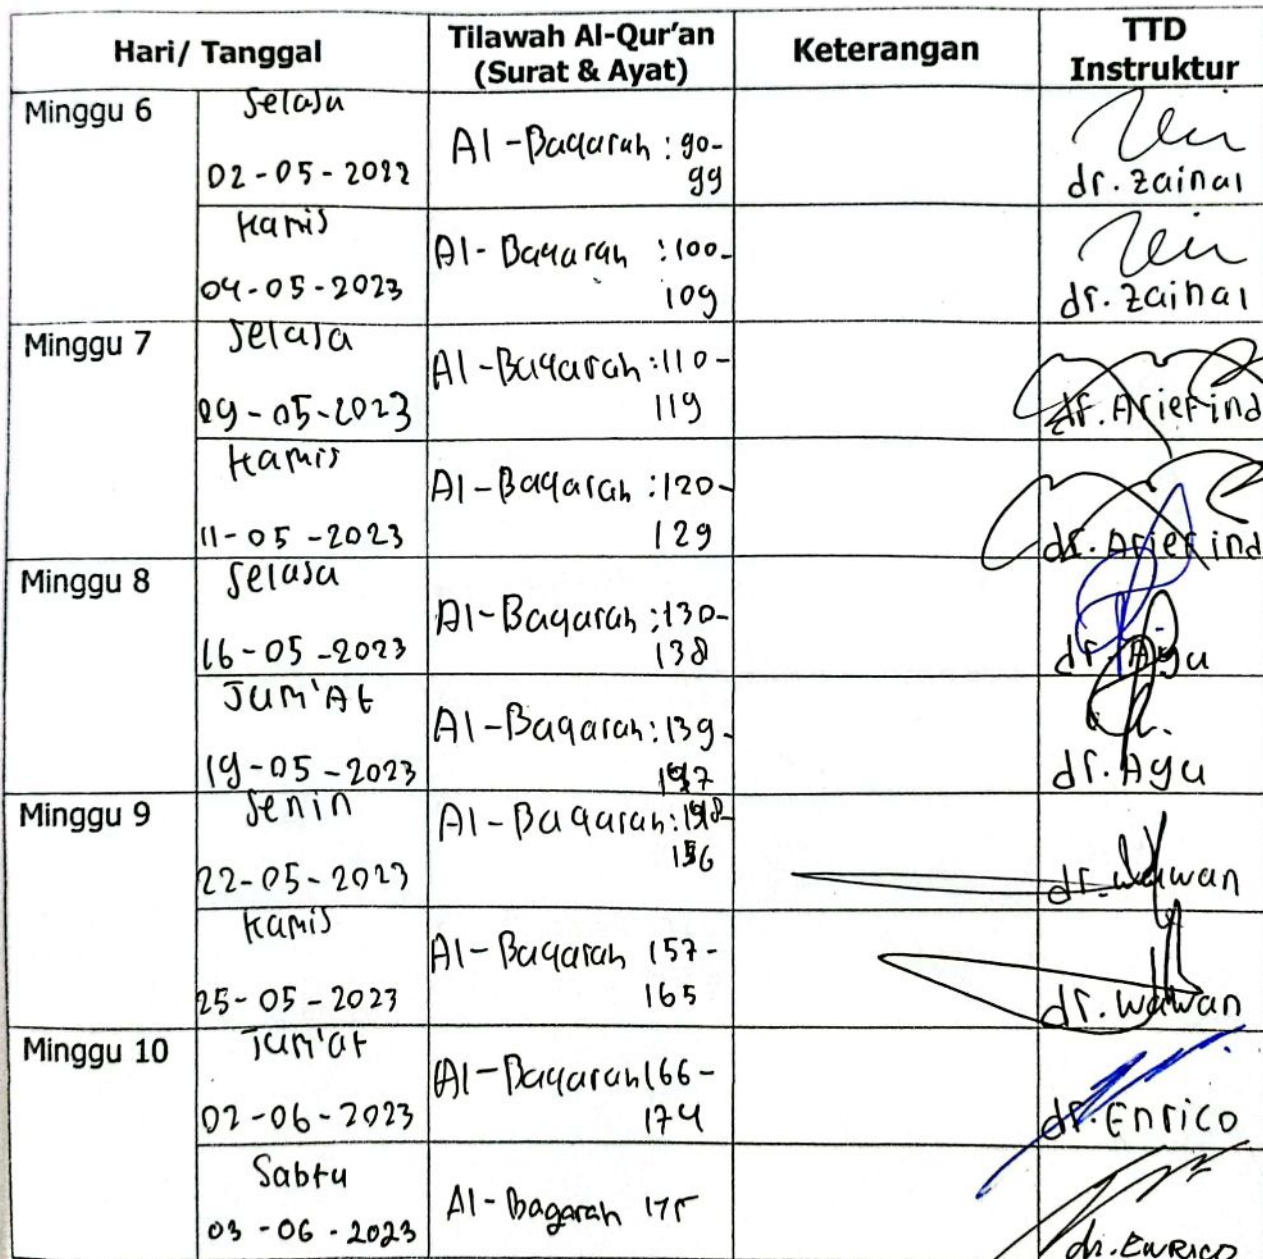 Hari/ Tanggal
Tilawah Al-Qur'an
(Surat & Ayat)
Keterangan
TTD
Instruktur
Minggu 6
Selasa
02-05-2022
Al-Baqarah : 90-
99
dr. Zainal
Kamis
04-05-2023
Al-Baqarah : 100-
109
dr. Zainal
Minggu 7
Selasa
09-05-2023
Al-Baqarah : 110-
119
dr. Arief ind
Kamis
11-05-2023
Al-Baqarah : 120-
129
dr. Arief ind
Minggu 8
Selasa
16-05-2023
Al-Baqarah : 130-
138
dr. Ayu
Jum'At
19-05-2023
Al-Baqarah : 139-
147
dr. Ayu
Minggu 9
Senin
22-05-2023
Al-Baqarah : 148-
156
dr. Wawan
Kamis
25-05-2023
Al-Baqarah 157-
165
dr. Wawan
Minggu 10
Jum'at
02-06-2023
Al-Baqarah 166-
174
dr. Enrico
Sabtu
03-06-2023
Al-Baqarah 175
dr. Enrico